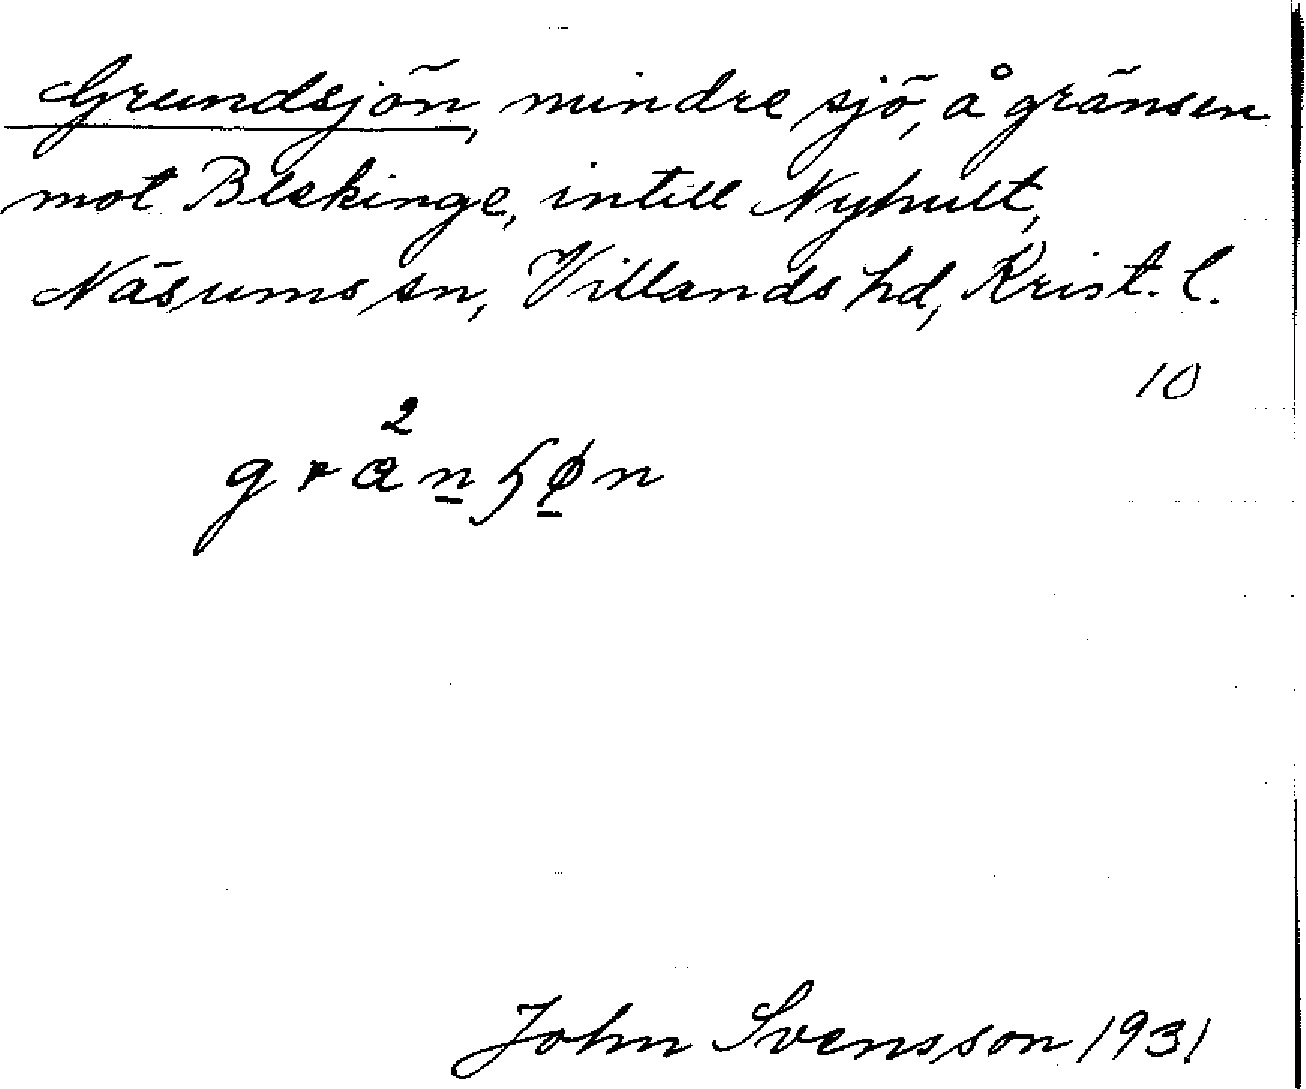 Grundsjön, mindre sjö, å gränsen
mot Blekinge, intill Nyhult,
Näsums sn, Villands hd, Krist. l.
10
John Svensson 1931